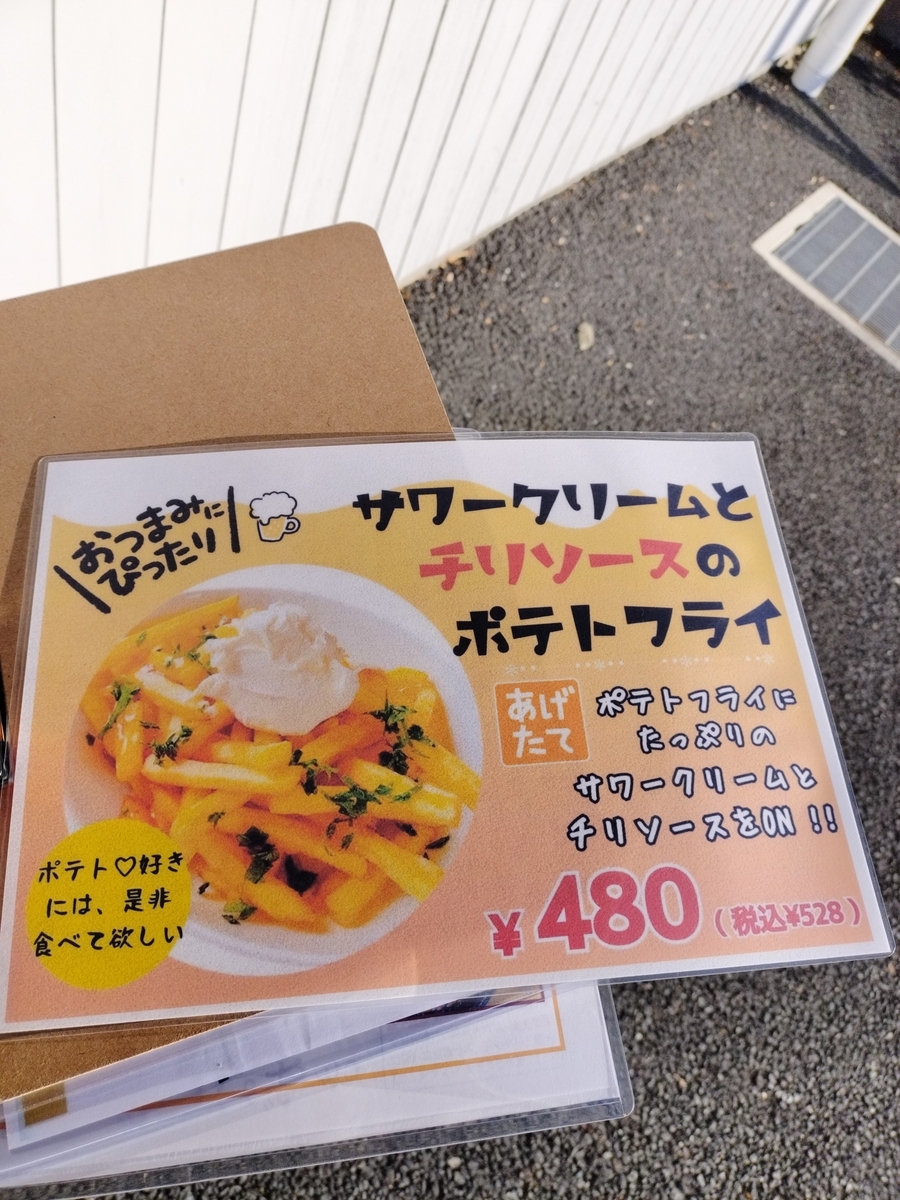 おつまみに
ぴったり
サワークリームと
チリソースの
ポテトフライ
あげ
たて
ポテトフライに
たっぷりの
サワークリームと
チリソースをON !!
ポテト♡好き
には、是非
食べて欲しい
¥480 (税込¥528)